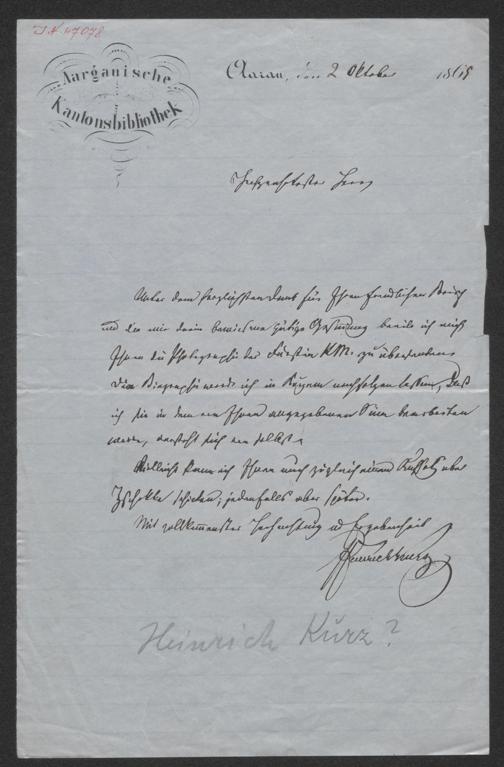 J.N. 47078
Aargauische
Kantonsbibliothek
Aarau, den 2 Oktober 1865
Hochgeehrtester Herr,
Unter dem herzlichsten Dank für Ihren freundlichen Brief
und die mir darin bewiesene gütige Gesinnung beeile ich mich
Ihnen die Photographie der Fürstin K.M. zu übersenden.
Die Biographie werde ich in Kurzem nachfolgen lassen, daß
ich sie in dem von Ihnen angegebenen Sinn bearbeiten
werde, versteht sich von selbst.
Vielleicht kann ich Ihnen auch zugleich einen Aufsatz über
Zschokke schicken, jedenfalls aber später.
Mit vollkommenster Hochachtung und Ergebenheit
Heinrich Kurz
Heinrich Kurz?